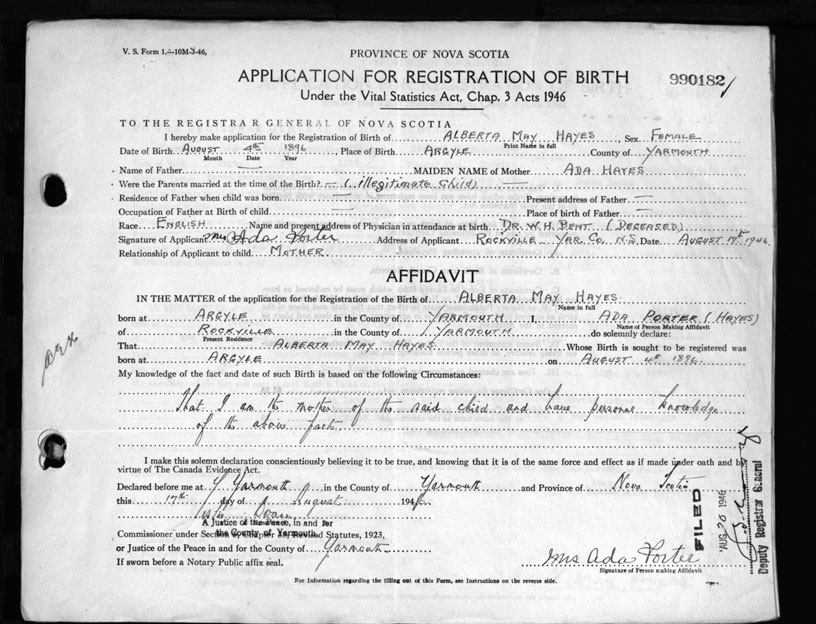 V. S. Form 1.—10M-3-46.
PROVINCE OF NOVA SCOTIA
APPLICATION FOR REGISTRATION OF BIRTH
990182
Under the Vital Statistics Act, Chap. 3 Acts 1946
TO THE REGISTRAR GENERAL OF NOVA SCOTIA
I hereby make application for the Registration of Birth of ALBERTA MAY HAYES, Sex FEMALE
Print Name in full
Date of Birth AUGUST 4th 1896, Place of Birth ARGYLE County of YARMOUTH
Month Date Year
Name of Father — MAIDEN NAME of Mother ADA HAYES
Were the Parents married at the time of the Birth? — (illegitimate child) —
Residence of Father when child was born — Present address of Father —
Occupation of Father at Birth of child — Place of birth of Father —
Race ENGLISH Name and present address of Physician in attendance at birth DR. W. H. BENT (DECEASED)
Signature of Applicant Mrs Ada Porter Address of Applicant ROCKVILLE YAR. CO. N.S. Date AUGUST 17th 1946
Relationship of Applicant to child MOTHER
AFFIDAVIT
IN THE MATTER of the application for the Registration of the Birth of ALBERTA MAY HAYES
Name in full
born at ARGYLE in the County of YARMOUTH I, ADA PORTER (HAYES)
Name of Person Making Affidavit
of ROCKVILLE in the County of YARMOUTH do solemnly declare:
Present Residence
That ALBERTA MAY HAYES Whose Birth is sought to be registered was
born at ARGYLE on AUGUST 4th 1896.
My knowledge of the fact and date of such Birth is based on the following Circumstances:
That I am the mother of the said child and have personal knowledge
of the above facts
I make this solemn declaration conscientiously believing it to be true, and knowing that it is of the same force and effect as if made under oath and by
virtue of The Canada Evidence Act.
Declared before me at Yarmouth in the County of Yarmouth and Province of Nova Scotia
this 17th day of August 1946
A Justice of the Peace, in and for
the County of Yarmouth
Commissioner under Section Chapter Revised Statutes, 1923,
or Justice of the Peace in and for the County of Yarmouth
If sworn before a Notary Public affix seal.
Mrs Ada Porter
Signature of Person making Affidavit
For Information regarding the filling out of this Form, see Instructions on the reverse side.
FILED
AUG 20 1946
Deputy Registrar General